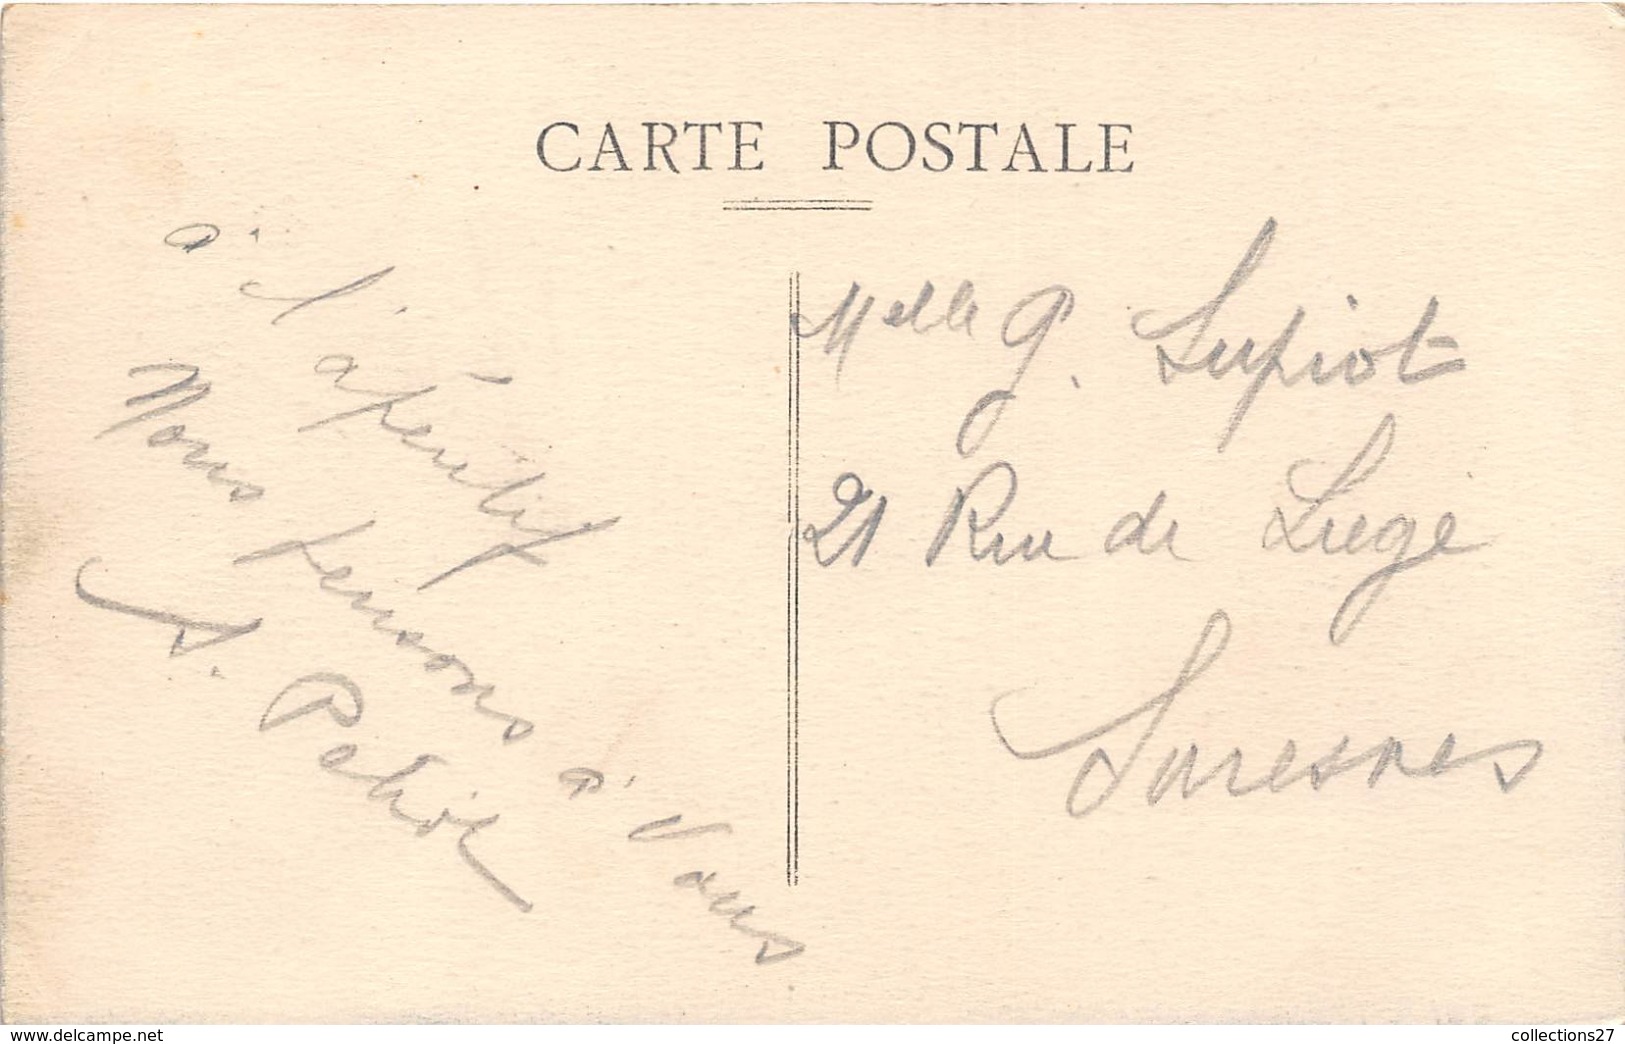 CARTE POSTALE
à l'apéritif
Nous pensons à vous
Melle G. Lupiot
21 Rue de Liège
Suresnes
www.delcampe.net
collections27